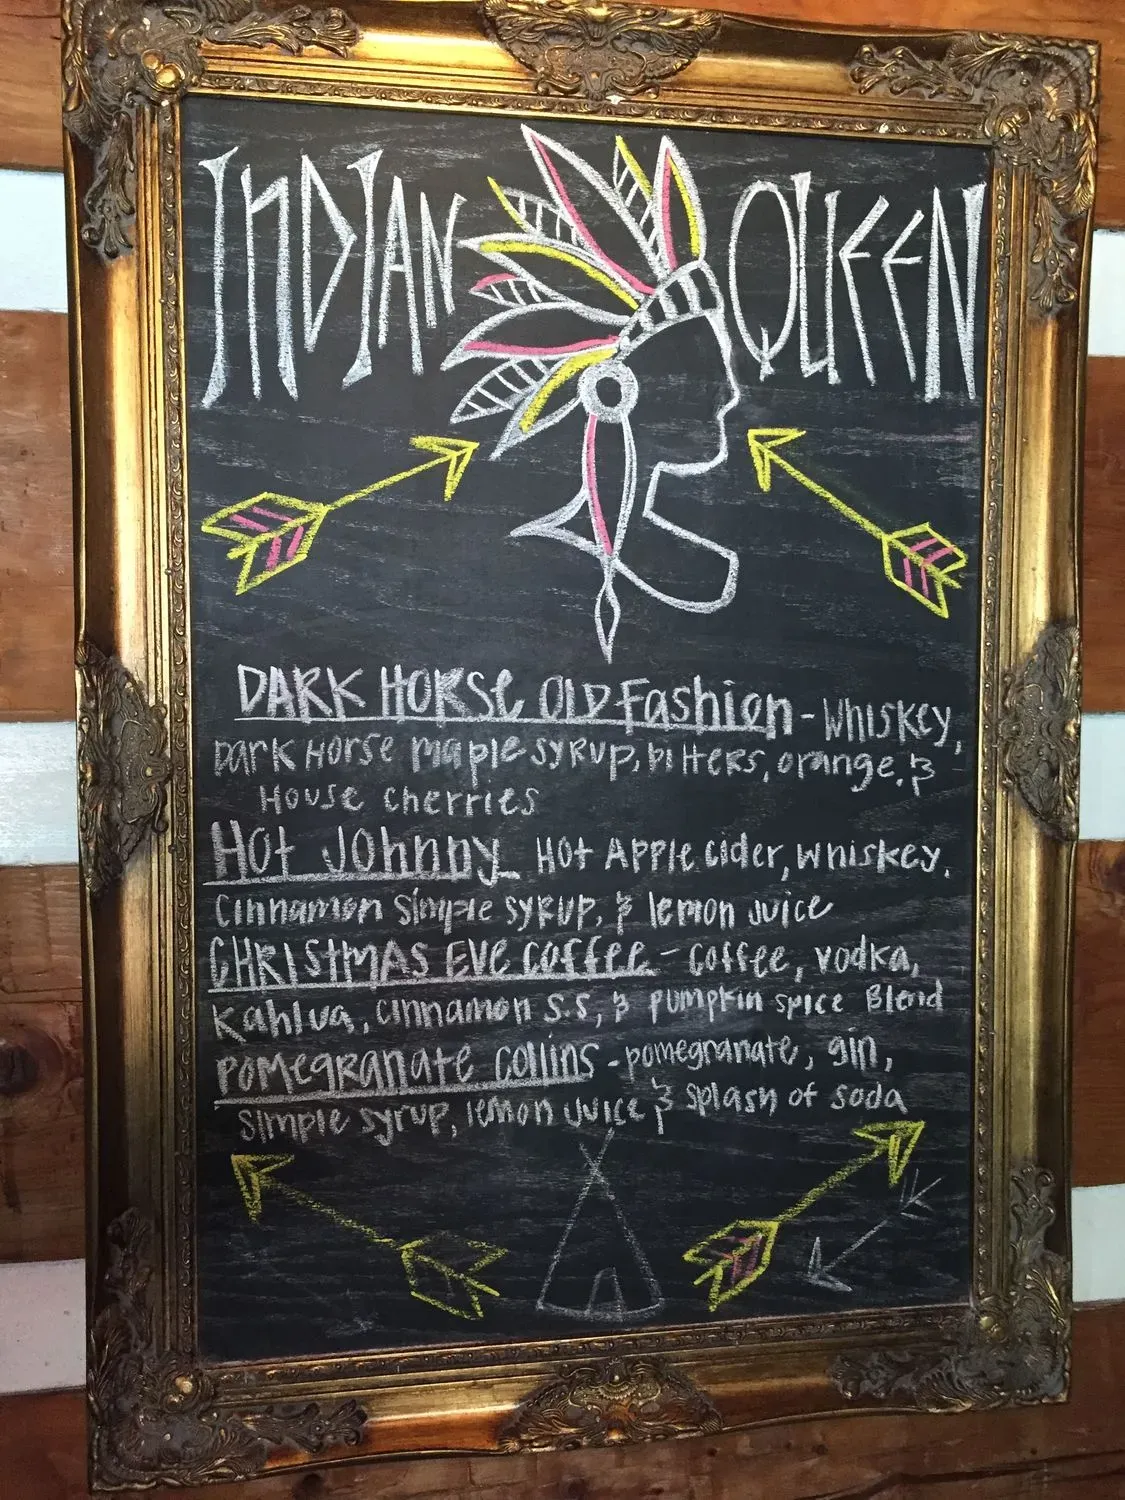 INDIAN QUEEN
DARK HORSE OLD Fashion - Whiskey,
Dark Horse maple syrup, bitters, orange, &
House cherries
Hot Johnny Hot Apple cider, whiskey,
Cinnamon Simple syrup, & lemon Juice
CHRISTMAS EVE COFFEE - Coffee, vodka,
Kahlua, cinnamon s.s, & pumpkin spice Blend
POMEGRANATE COLLINS - pomegranate, gin,
Simple syrup, lemon Juice & splash of soda